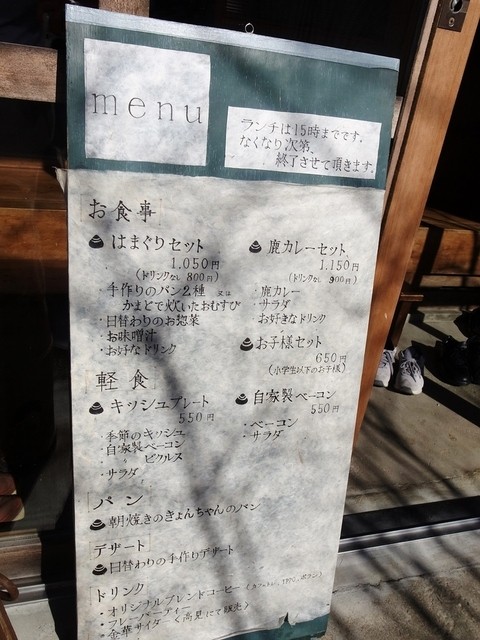 menu
ランチは15時までです。
なくなり次第、
終了させて頂きます。
お食事
はまぐりセット
1,050円
(ドリンクなし 800円)
・手作りのパン2種 又は
かまどで炊いたおむすび
・日替わりのお惣菜
・お味噌汁
・お好なドリンク
鹿カレーセット
1,150円
(ドリンクなし 900円)
・鹿カレー
・サラダ
・お好きなドリンク
お子様セット
650円
(小学生以下のお子様)
軽食
キッシュプレート
550円
・季節のキッシュ
・自家製ベーコン
〃 ピクルス
・サラダ
自家製ベーコン
550円
・ベーコン
・サラダ
パン
朝焼きのきょんちゃんのパン
デザート
日替わりの手作りデザート
ドリンク
・オリジナルブレンドコーヒー
・フレーバーティー
・金華サイダー